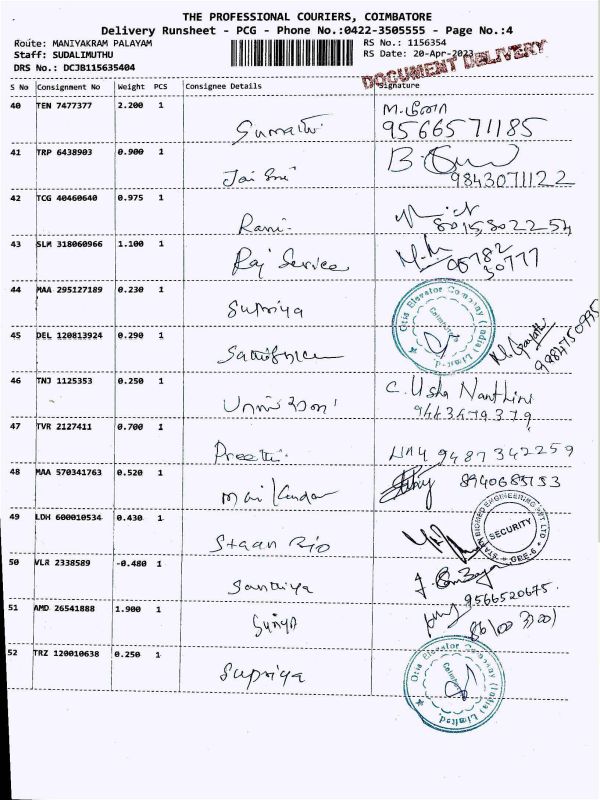 THE PROFESSIONAL COURIERS, COIMBATORE
Delivery Runsheet - PCG - Phone No.:0422-3505555 - Page No.:4
Route: MANIYAKRAM PALAYAM
RS No.: 1156354
Staff: SUDALIMUTHU
RS Date: 20-Apr-2023
DRS No.: DCJB115635404
DOCUMENT DELIVERY
S No Consignment No Weight PCS Consignee Details Signature
40 TEN 7477377 2.200 1
9566571185
41 TRP 6438903 0.900 1
Jai Sri
9843071122
42 TCG 40460640 0.975 1
Rani.
8015802254
43 SLM 318060966 1.100 1
Raj Service
44 MAA 295127189 0.230 1
Supriya
Otis Elevator Company (India) Limited.
Coimbatore
45 DEL 120813924 0.290 1
46 TNJ 1125353 0.250 1
C. Usha Nanthini
9443479379
47 TVR 2127411 0.700 1
Preethi.
9487342259
48 MAA 570341763 0.520 1
8940685153
Mani
49 LDH 600010534 0.430 1
Staan Bio
SECURITY
50 VLR 2338589 -0.480 1
Santhiya
9566520675.
51 AMD 26541888 1.900 1
Surya
52 TRZ 120010638 0.250 1
Supriya
Otis Elevator Company (India) Limited.
Coimbatore